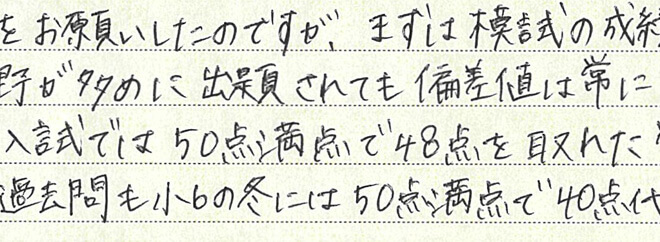 をお願いしたのですが、まずは模試の成績
野が多めに出題されても偏差値は常に
入試では50点満点で48点を取れた
過去問も小6の冬には50点満点で40点代